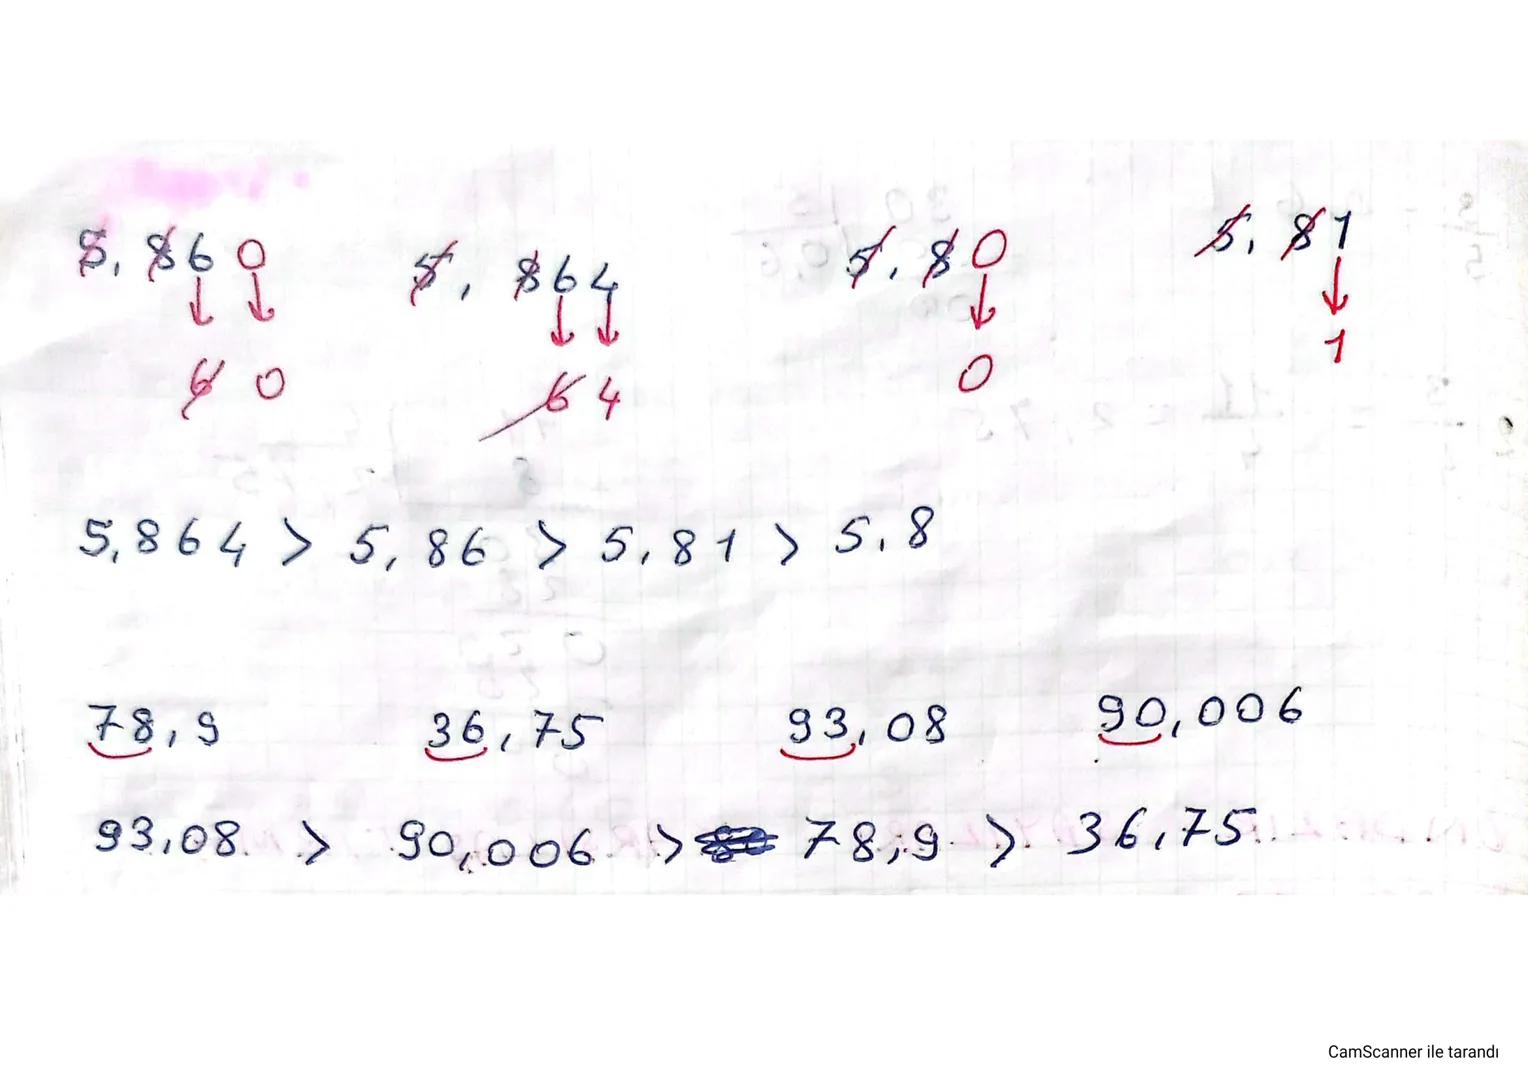 5,860 5,864 5,80 5,81
60 64 0 1
5,864 > 5,86 > 5,81 > 5,8
78,9 36,75 93,08 90,006
93,08 > 90,006 > 78,9 > 36,75
CamScanner ile tarandı